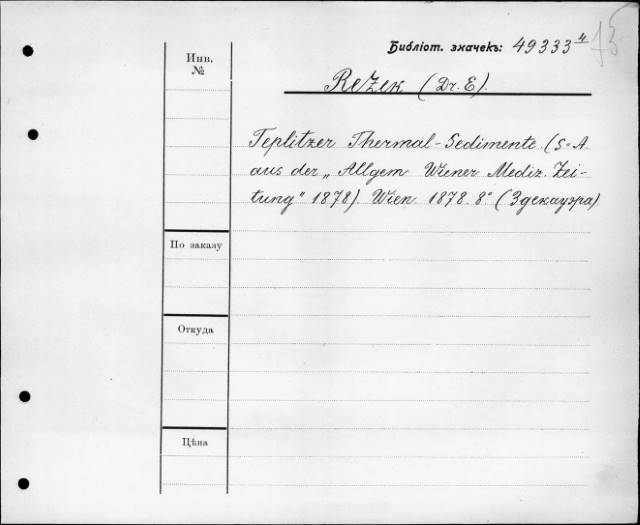 Библіот. значекъ: 49333⁴
Инв. №
ReZek (Dr. E).
Teplitzer Thermal-Sedimente (S-A
aus der „Allgem Wiener Mediz. Zei-
tung" 1878). Wien. 1878. 8° (Здекауэра)
По заказу
Откуда
Цѣна